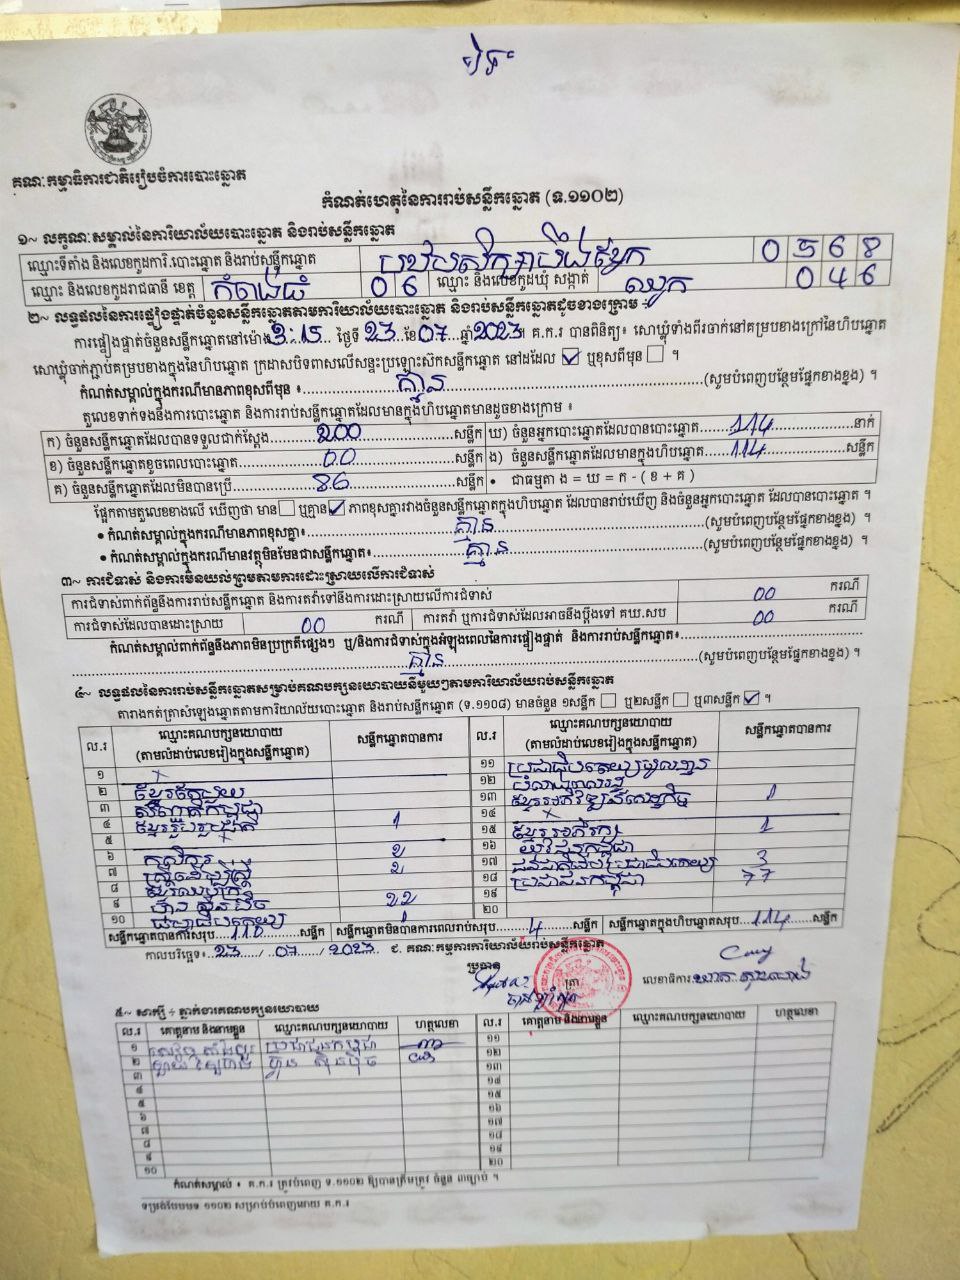 បិទ
គណៈកម្មាធិការជាតិរៀបចំការបោះឆ្នោត
កំណត់ហេតុនៃការរាប់សន្លឹកឆ្នោត (ទ.១១០២)
១~ លក្ខណៈសម្គាល់នៃការិយាល័យបោះឆ្នោត និងរាប់សន្លឹកឆ្នោត
ឈ្មោះទីតាំង និងលេខកូដការិ.បោះឆ្នោត និងរាប់សន្លឹកឆ្នោត 0568
ឈ្មោះ និងលេខកូដរាជធានី ខេត្ត កំពង់ធំ 06 ឈ្មោះ និងលេខកូដឃុំ សង្កាត់ ឈូក 046
២~ លទ្ធផលនៃការផ្ទៀងផ្ទាត់ចំនួនសន្លឹកឆ្នោតតាមការិយាល័យបោះឆ្នោត និងរាប់សន្លឹកឆ្នោតដូចខាងក្រោម ÷
ការផ្ទៀងផ្ទាត់ចំនួនសន្លឹកឆ្នោតនៅម៉ោង 3:15 ថ្ងៃទី 23 ខែ 07 ឆ្នាំ 2023។ គ.ក.រ បានពិនិត្យ៖ សោឃ្លុំទាំងពីរចាក់នៅគម្របខាងក្រៅនៃហិបឆ្នោត
សោឃ្លុំចាក់ភ្ជាប់គម្របខាងក្នុងនៃហិបឆ្នោត ក្រដាសបិទពាសលើសន្ទះប្រឡោះស៊កសន្លឹកឆ្នោត នៅដដែល ✓ ឬខុសពីមុន ។
កំណត់សម្គាល់ក្នុងករណីមានភាពខុសពីមុន ៖ គ្មាន (សូមបំពេញបន្ថែមផ្នែកខាងខ្នង) ។
តួលេខទាក់ទងនឹងការបោះឆ្នោត និងការរាប់សន្លឹកឆ្នោតដែលមានក្នុងហិបឆ្នោតមានដូចខាងក្រោម ៖
ក) ចំនួនសន្លឹកឆ្នោតដែលបានទទួលជាក់ស្តែង 200 សន្លឹក ឃ) ចំនួនអ្នកបោះឆ្នោតដែលបានបោះឆ្នោត 114 នាក់
ខ) ចំនួនសន្លឹកឆ្នោតខូចពេលបោះឆ្នោត 00 សន្លឹក ង) ចំនួនសន្លឹកឆ្នោតដែលមានក្នុងហិបឆ្នោត 114 សន្លឹក
គ) ចំនួនសន្លឹកឆ្នោតដែលមិនបានប្រើ 86 សន្លឹក • ជាធម្មតា ង = ឃ = ក - ( ខ + គ )
ផ្អែកតាមតួលេខខាងលើ ឃើញថា មាន ឬគ្មាន ✓ ភាពខុសគ្នារវាងចំនួនសន្លឹកឆ្នោតក្នុងហិបឆ្នោត ដែលបានរាប់ឃើញ និងចំនួនអ្នកបោះឆ្នោត ដែលបានបោះឆ្នោត ។
• កំណត់សម្គាល់ក្នុងករណីមានភាពខុសគ្នា៖ គ្មាន (សូមបំពេញបន្ថែមផ្នែកខាងខ្នង) ។
• កំណត់សម្គាល់ក្នុងករណីមានវត្ថុមិនមែនជាសន្លឹកឆ្នោត៖ គ្មាន (សូមបំពេញបន្ថែមផ្នែកខាងខ្នង) ។
៣~ ការជំទាស់ និងការមិនយល់ព្រមតាមការដោះស្រាយលើការជំទាស់
ការជំទាស់ពាក់ព័ន្ធនឹងការរាប់សន្លឹកឆ្នោត និងការតវ៉ាទៅនឹងការដោះស្រាយលើការជំទាស់ 00 ករណី
ការជំទាស់ដែលបានដោះស្រាយ 00 ករណី ការតវ៉ា ឬការជំទាស់ដែលអាចនឹងប្តឹងទៅ គឃ.សប 00 ករណី
កំណត់សម្គាល់ពាក់ព័ន្ធនឹងភាពមិនប្រក្រតីផ្សេងៗ ឬ/និងការជំទាស់ក្នុងអំឡុងពេលនៃការផ្ទៀងផ្ទាត់ និងការរាប់សន្លឹកឆ្នោត៖
គ្មាន (សូមបំពេញបន្ថែមផ្នែកខាងខ្នង) ។
៤~ លទ្ធផលនៃការរាប់សន្លឹកឆ្នោតសម្រាប់គណបក្សនយោបាយនីមួយៗតាមការិយាល័យរាប់សន្លឹកឆ្នោត
តារាងកត់ត្រាសំឡេងឆ្នោតតាមការិយាល័យបោះឆ្នោត និងរាប់សន្លឹកឆ្នោត (ទ.១១០៨) មានចំនួន ១សន្លឹក ឬ២សន្លឹក ឬ៣សន្លឹក ✓ ។
ល.រ ឈ្មោះគណបក្សនយោបាយ (តាមលំដាប់លេខរៀងក្នុងសន្លឹកឆ្នោត) សន្លឹកឆ្នោតបានការ ល.រ ឈ្មោះគណបក្សនយោបាយ (តាមលំដាប់លេខរៀងក្នុងសន្លឹកឆ្នោត) សន្លឹកឆ្នោតបានការ
១ x
២ ខ្មែរឥត្តមយោ
៣ សញ្ជាតិកម្ពុជា
៤ ខ្មែររួបរួមជាតិ 1
៥ x
៦ កសិករ 2
៧ ស្ត្រីដើម្បីស្ត្រី 2
៨ ខ្មែរឈប់ក្រ
៩ ហ៊្វុនស៊ិនប៉ិច 22
១០ ធម្មាធិបតេយ្យ 1
១១ ប្រជាធិបតេយ្យមូលដ្ឋាន
១២
១៣ ខ្មែរអភិវឌ្ឍន៍សេដ្ឋកិច្ច 1
១៤ x
១៥ ខ្មែរអភិរក្ស 1
១៦ យុវជនកម្ពុជា
១៧ ជនជាតិដើមប្រជាធិបតេយ្យ 3
១៨ ប្រជាជនកម្ពុជា 77
១៩
២០
សន្លឹកឆ្នោតបានការសរុប 110 សន្លឹក សន្លឹកឆ្នោតមិនបានការពេលរាប់សរុប 4 សន្លឹក សន្លឹកឆ្នោតក្នុងហិបឆ្នោតសរុប 114 សន្លឹក
កាលបរិច្ឆេទ៖ 23 / 07 / 2023 ជ. គណៈកម្មការការិយាល័យរាប់សន្លឹកឆ្នោត
ប្រធាន ត្រា លេខាធិការ
៥~ សាក្សី ÷ ភ្នាក់ងារគណបក្សនយោបាយ
ល.រ គោត្តនាម និងនាមខ្លួន ឈ្មោះគណបក្សនយោបាយ ហត្ថលេខា ល.រ គោត្តនាម និងនាមខ្លួន ឈ្មោះគណបក្សនយោបាយ ហត្ថលេខា
១ ប្រជាជនកម្ពុជា ១១
២ ហ៊្វុន ស៊ិនប៉ិច ១២
៣ ១៣
៤ ១៤
៥ ១៥
៦ ១៦
៧ ១៧
៨ ១៨
៩ ១៩
១០ ២០
កំណត់សម្គាល់ ៖ គ.ក.រ ត្រូវបំពេញ ទ.១១០២ ឱ្យបានត្រឹមត្រូវ ចំនួន ៣ច្បាប់ ។
ទម្រង់បែបបទ ១១០២ សម្រាប់បំពេញដោយ គ.ក.រ